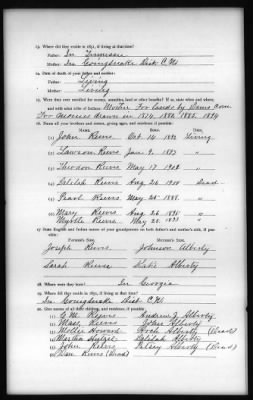 13. Where did they reside in 1851, if living at that time?
Father: In Tennessee
Mother: In Goingsnake Dist C.N.
14. Date of death of your father and mother:
Father: Living
Mother: Living
15. Were they ever enrolled for money, annuities, land or other benefits? If so, state when and where, and with what other tribe of Indians:
Mother For lands by Dawes Com
For monies drawn in 1874. 1880. 1883. 1894
16. Name of your brothers and sisters, giving ages, and residence if possible:
NAME. BORN. DIED.
(1) John Reeves Oct. 14 1892 Living
(2) Lawson Reeves Jan. 9. 1897 "
(3) Theodore Reeves May 17 1902 "
(4) Delilah Reeves Aug 26 1900 Dead
(5) Pearl Reeves May 28. 1888. "
(6) Mary Reeves Aug 26 1891 "
Myrtle Reeves 1883 "
17. State English and Indian names of your grandparents on both father's and mother's side, if possible:
FATHER'S SIDE. MOTHER'S SIDE.
Joseph Reeves Johnson Alberty
Sarah Reeves Katie Alberty
18. Where were they born? In Georgia
19. Where did they reside in 1851, if living at that time?
In Goingsnake Dist C.N.
20. Give names of all their children, and residence, if possible:
(1) G.W. Reeves Andrew J. Alberty
(2) Mary Reeves John Alberty
(3) Mollie Howard Alberty (Dead)
(4) Martha Delilah Alberty
(5) John Reeves Alberty (Dead)
(6) Reeves (Dead)